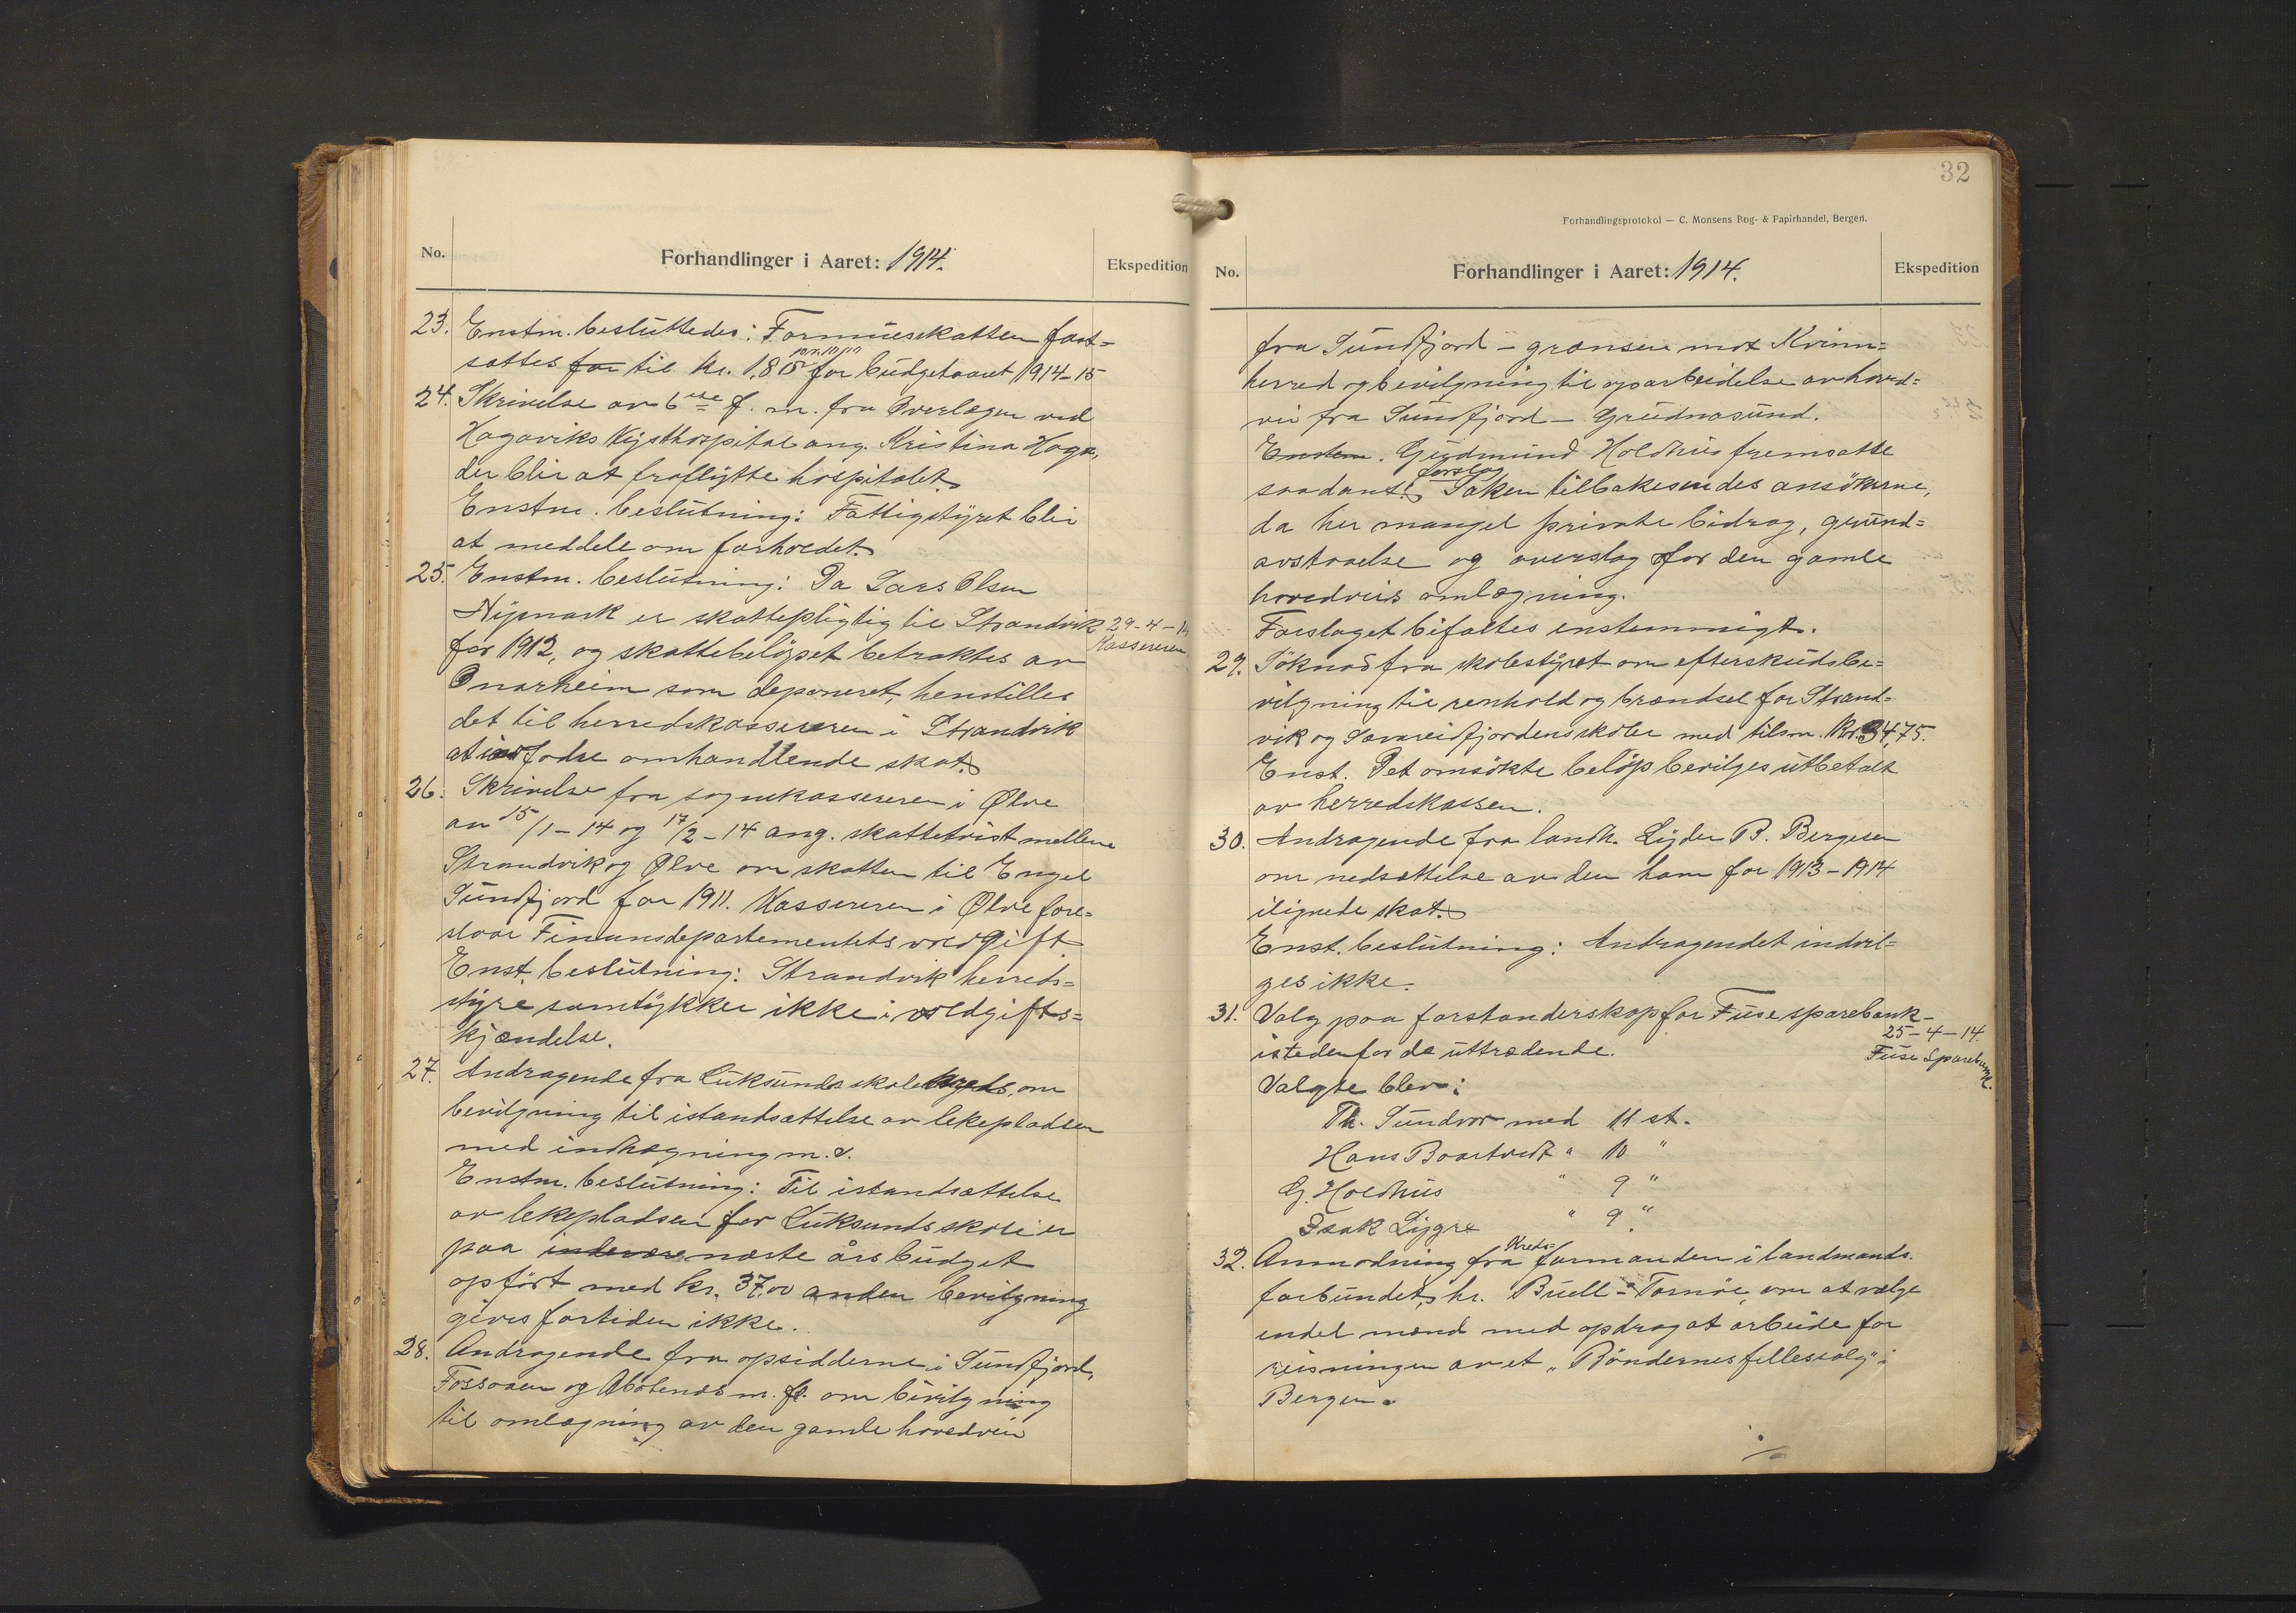 No.
Forhandlinger i Aaret: 1914.
Ekspedition
23. Enstm. besluttedes: Formuesskatten fast=
sættes for til kr. 1,80 for budgetaaret 1914-15
24. Skrivelse av 6te f. m. fra Overlægen ved
Hagaviks Kysthospital ang. Kristina Haga,
der blir at fraflytte hospitalet.
Enstm. beslutning: Fattigstyret blir
at meddele om forholdet.
25. Enstm. beslutning: Da Lars Olsen
Nymark er skattepligtig til Strandvik
for 1912, og skattebeløpet betraktes av
Onarheim som deponeret, henstilles
det til herredskassereren i Strandvik
at indfodre omhandlende skat.
29-4-14
Kassereren
26. Skrivelse fra sognekassereren i Ølve
av 15/1-14 og 17/2-14 ang. skattetvist mellem
Strandvik og Ølve om skatten til Engel
Sundfjord for 1911. Kassereren i Ølve fore=
slaar Finansdepartementets voldgift
Enst. beslutning: Strandvik herreds=
styre samtykker ikke i voldgifts=
kjændelse.
27. Andragende fra Luksunds skolekreds om
bevilgning til istandsættelse av lekepladsen
med indhægning m. v.
Enstm. beslutning: Til istandsættelse
av lekepladsen for Luksunds skole er
paa indevære næste års budget
opført med kr. 37.00 anden bevilgning
gives fortiden ikke.
28. Andragende fra opsidderne i Sundfjord,
Fossaaen og m. fl. om bevilgning
til omlægning av den gamle hovedvei
32
Forhandlingsprotokol — C. Monsens Bog- & Papirhandel, Bergen.
No.
Forhandlinger i Aaret: 1914.
Ekspedition
fra Sundfjord - grænsen mot Kvinn=
herred og bevilgning til oparbeidelse av hoved=
vei fra Sundfjord - Grudnasund.
Enstem. Gudmund Holdhus fremsatte
saadant forslag: Saken tilbakesendes ansökerne,
da her mangel private bidrag, grund=
avstaaelse og overslag for den gamle
hovedveis omlægning.
Forslaget bifaltes enstemmigt.
29. Söknad fra skolestyret om efterskudsbe=
vilgning til renhold og brændsel for Strand=
vik og Sævareidfjordens skoler med tilsm. Kr. 34,75.
Enst. Det omsökte belöp bevilges utbetalt
av herredskassen.
30. Andragende fra landh. Lyder B. Bergesen
om nedsættelse av den ham for 1913-1914
ilignede skat.
Enst. beslutning: Andragendet indvil=
ges ikke.
31. Valg paa forstanderskap for Fuse sparebank
istedenfor de uttrædende.
25-4-14.
Fuse Sparebank.
Valgte blev:
Th. Sundvor med 11 st.
Hans Baartvedt " 10 "
G. Holdhus " 9 "
Isak Lygre " 9 "
32. Anmodning fra Kreds=formanden i landmands.
forbundet, hr. Buell-Tornöe, om at vælge
endel mænd med opdrag at arbeide for
reisningen av et „Böndernes fellessalg" i
Bergen.